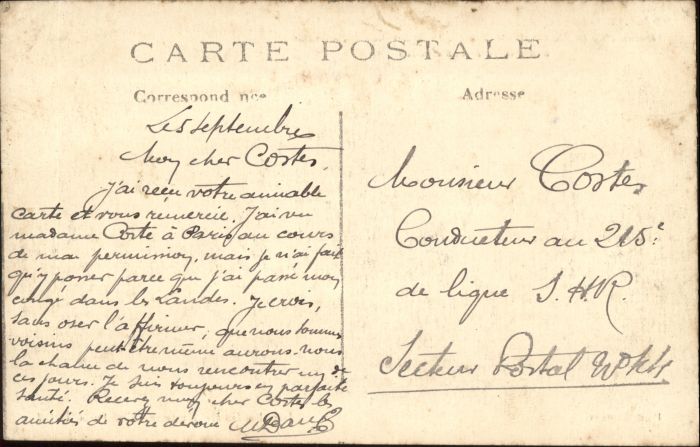 CARTE POSTALE
Correspond nce
Adresse
Le 5 septembre
Mon cher Costes,
J'ai reçu votre aimable
carte et vous remercie. J'ai vu
madame Coste à Paris au cours
de ma permission, mais je n'ai fait
qu'y passer parce que j'ai passé mon
congé dans les Landes. Je crois,
sans oser l'affirmer, que nous sommes
voisins peut-être même aurons-nous
la chance de nous rencontrer un de
ces jours. Je suis toujours en parfaite
santé. Recevez mon cher Costes les
amitiés de votre dévoué
Monsieur Costes
Conducteur au 215e
de ligne S.H.R.
Secteur Postal